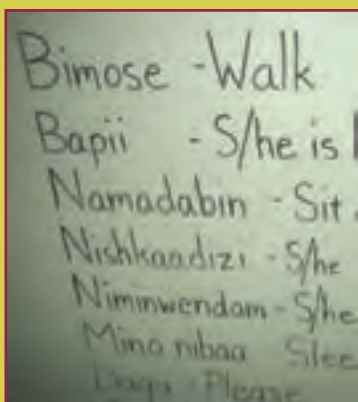 Bimose - Walk
Bapii - S/he is
Namadabin - Sit
Nishkaadizi - S/he
Niminwendam - S/he
Mino nibaa Slee
Daga - Please